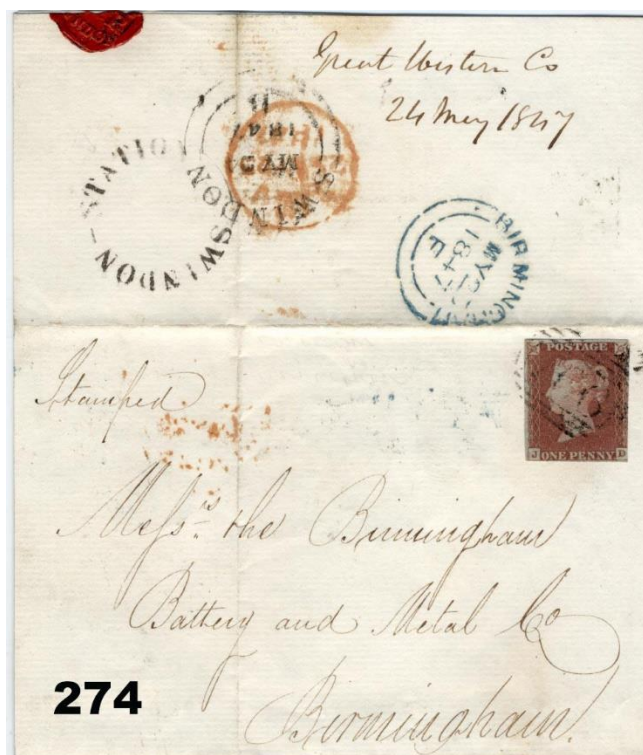 Great Western Co
24 May 1847
SWINDON STATION
SWINDON
1847
BIRMINGHAM
MY
1847
F
POSTAGE
ONE PENNY
J D
Stamped.
Messrs. the Birmingham
Battery and Metal Co
Birmingham.
274